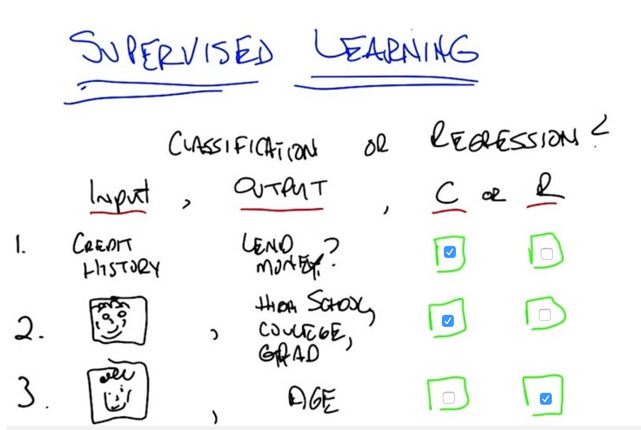 SUPERVISED LEARNING
CLASSIFICATION OR REGRESSION?
INPUT, OUTPUT, C OR R
1. CREDIT HISTORY LEND MONEY?
2. , HIGH SCHOOL, COLLEGE, GRAD
3. , AGE